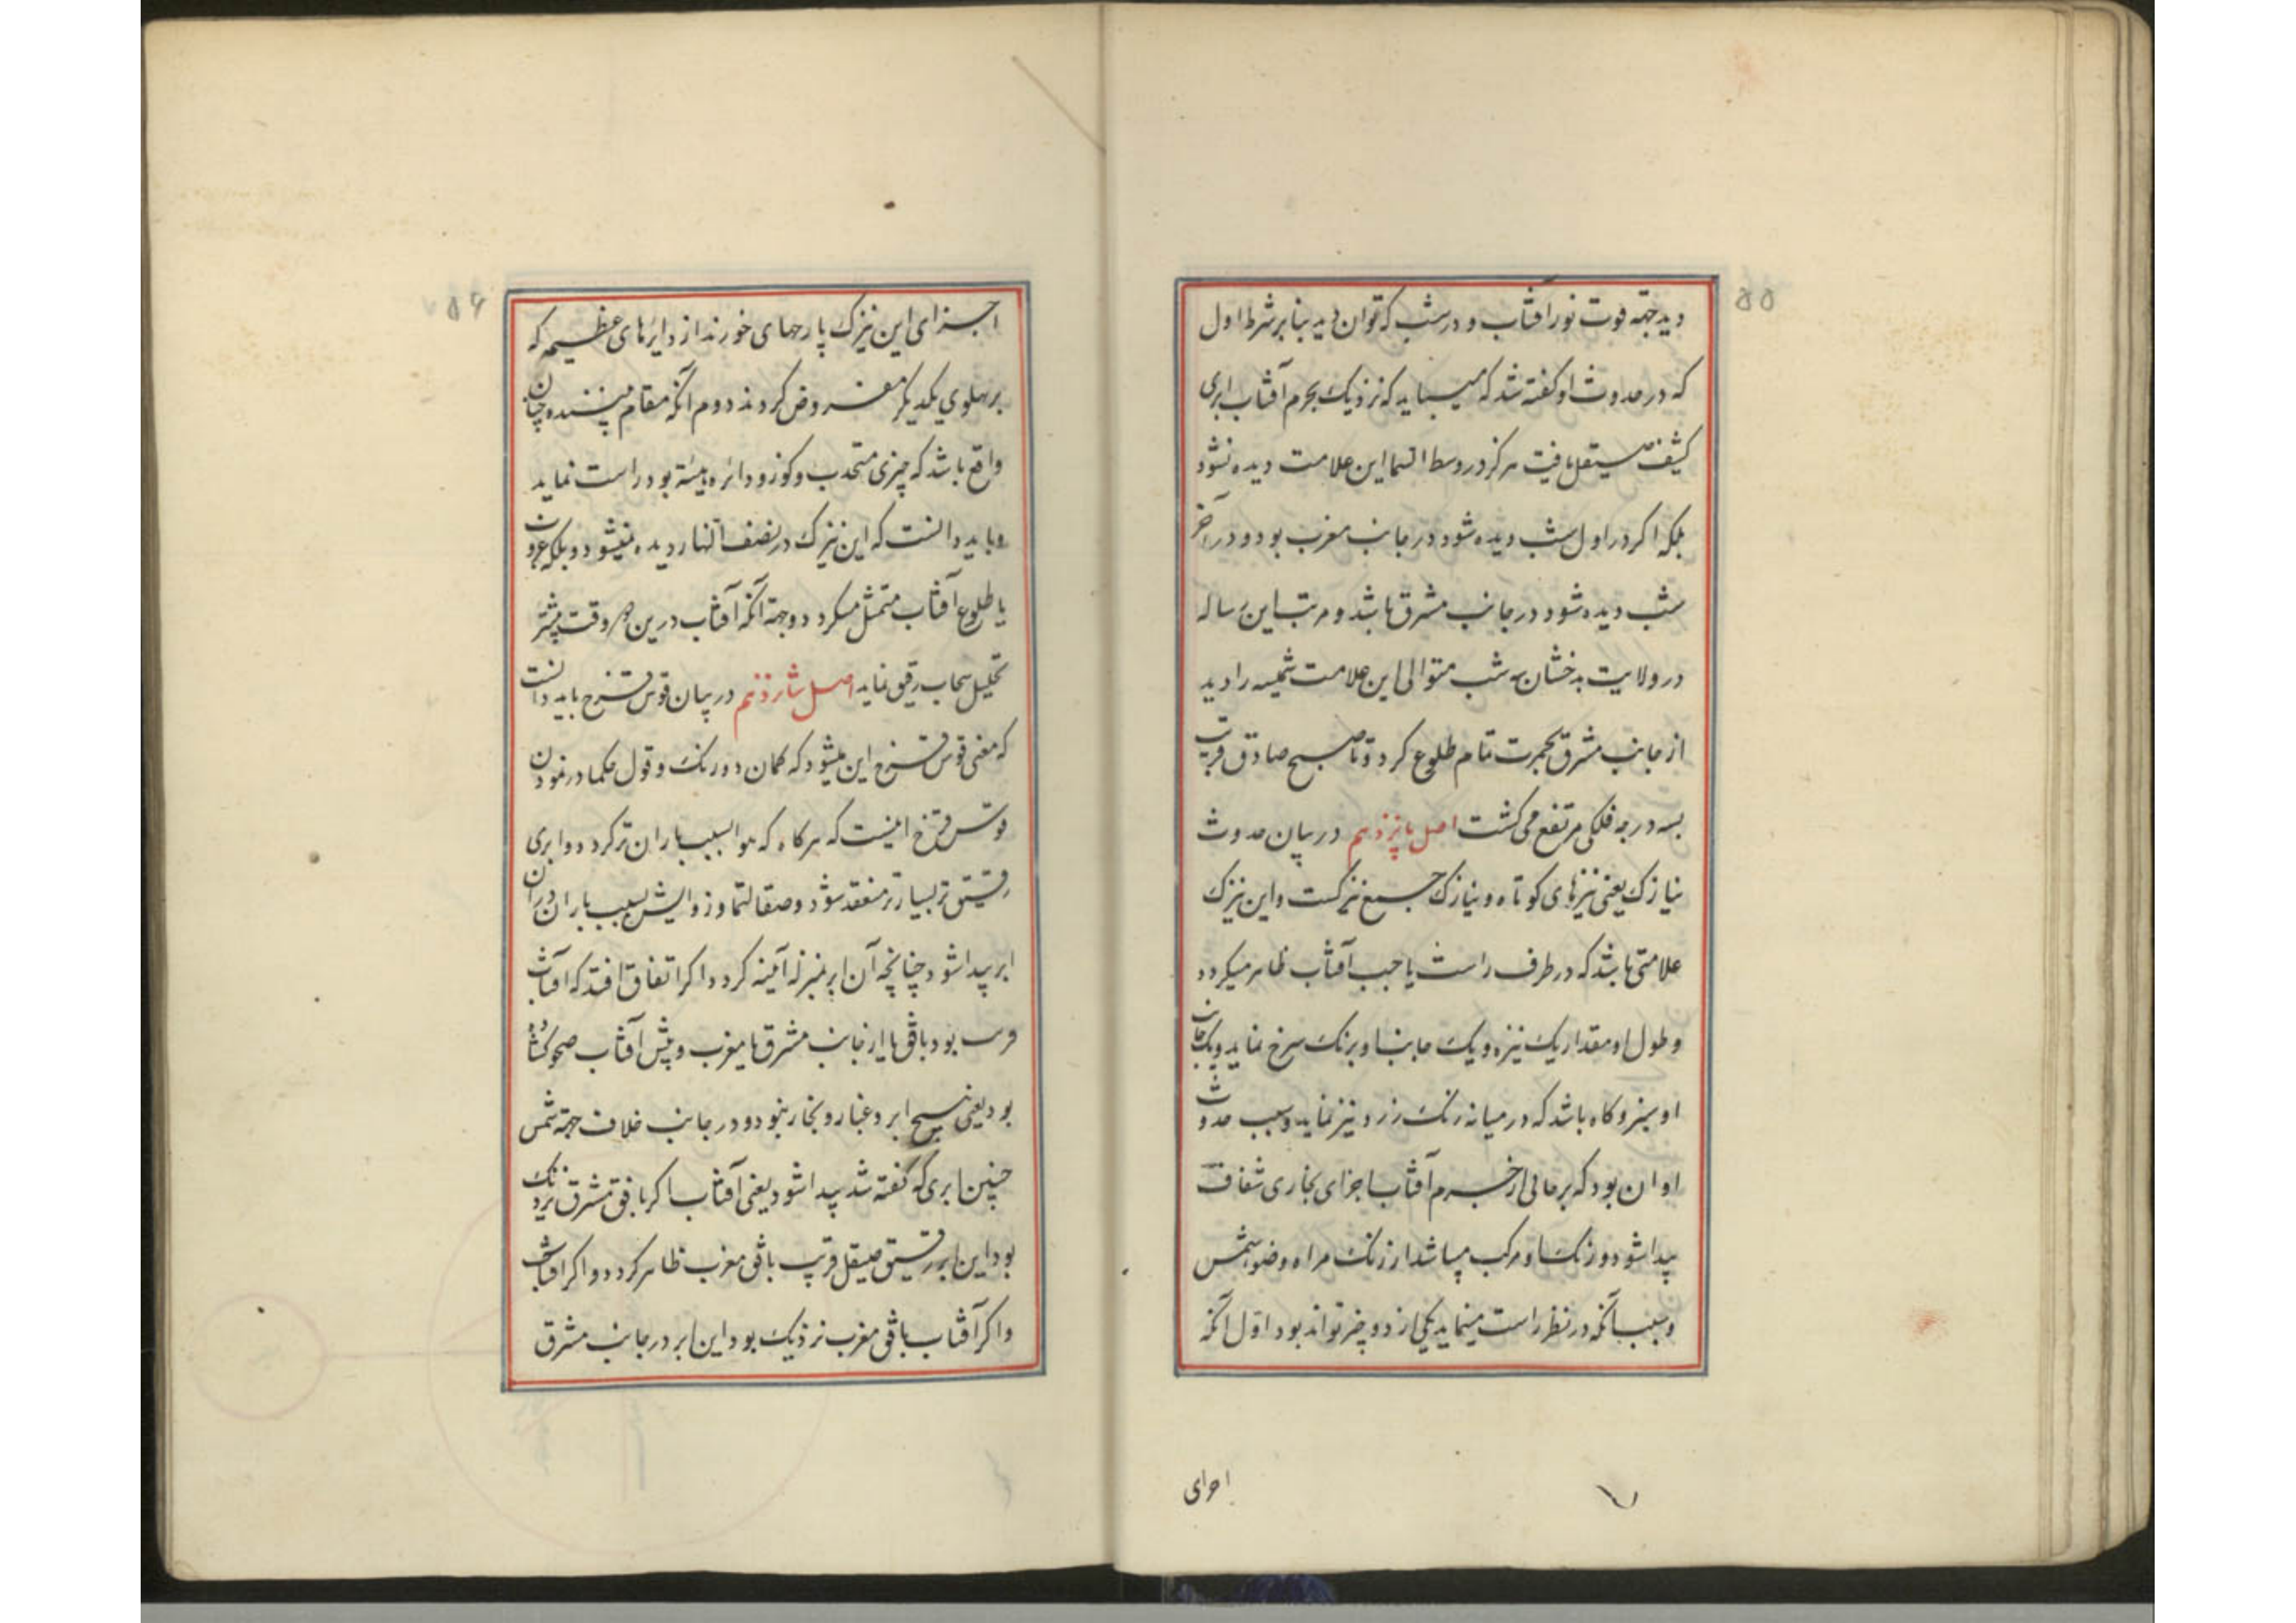 ۵۵
دید جهة قوت نور آفتاب و در شب که توان دید بنابر شرط اول
که در حدوث او گفته شد که میباید که نزدیک بجرم آفتاب ابری
کثیف صیقل یافت هرگز در وسط السما این علامت دیده نشود
بلکه اگر در اول شب دیده شود در جانب مغرب بود و در آخر
شب دیده شود در جانب مشرق باشد و مرتب این رساله
در ولایت بدخشان سه شب متوالی این علامت شمیسه را دید
از جانب مشرق بحمرت تمام طلوع کرد و تا صبح صادق قریب
بسه درجه فلکی مرتفع می گشت اصل پانزدهم در بیان حدوث
نیازک یعنی نیزهای کوتاه و نیازک جمع نیزکست و این نیزک
علامتی باشد که در طرف راست یا چب آفتاب ظاهر میگردد
و طول او مقدار یک نیزه و یک جانب او برنک سرخ نماید و یک جانب
او سبز و گاه باشد که در میانه رنک زرد نیز نماید و سبب حدوث
او ان بود که بر حالی از جرم آفتاب اجزای بخاری شفاف
پیدا شود و رنک او مرکب میباشد از رنک مراه و ضوء شمس
و سبب آنکه در نظر راست مینماید یکی از دو چیز تواند بود اول آنکه
اجزای
۵۶
اجزای این نیزک پارهای خورند از دایرهای عظیمه که
بر پهلوی یکدیگر مفروض کردند دوم آنکه مقام بیننده چنان
واقع باشد که چیزی متحدب و کوز و دائره هیئة بود راست نماید
و باید دانست که این نیزک در نصف النهار دیده نمیشود و بلکه غروب
یا طلوع آفتاب متمثل میکردد و جهة آنکه آفتاب درین هر وقت بیشتر
تحلیل سحاب رقیق نماید اصل شانزدهم در بیان قوس قزح باید دانست
که معنی قوس قزح این میشود که کمان دو رنک و قول حکما در نمودن
قوس قزح اینست که هرگاه که هوا بسبب باران تر کردد و ابری
رقیق تر بسیار تر منعقد شود و صقالت بسبب باران دران
ابر پیدا شود چنانچه آن ابر بمنزله آیینه کردد اگر اتفاق افتد که آفتاب
قریب بود بافق یا از جانب مشرق یا مغرب و پیش آفتاب صحو کشاده
بود یعنی هیچ ابر و غبار و بخار نبود و در جانب خلاف جهة شمس
چنین ابری که گفته شد پیدا شود یعنی آفتاب اگر بافق مشرق نزدیک
بود این ابر رقیق صیقل قریب بافق مغرب ظاهر کردد و اگر آفتاب
و اگر آفتاب بافق مغرب نزدیک بود این ابر در جانب مشرق